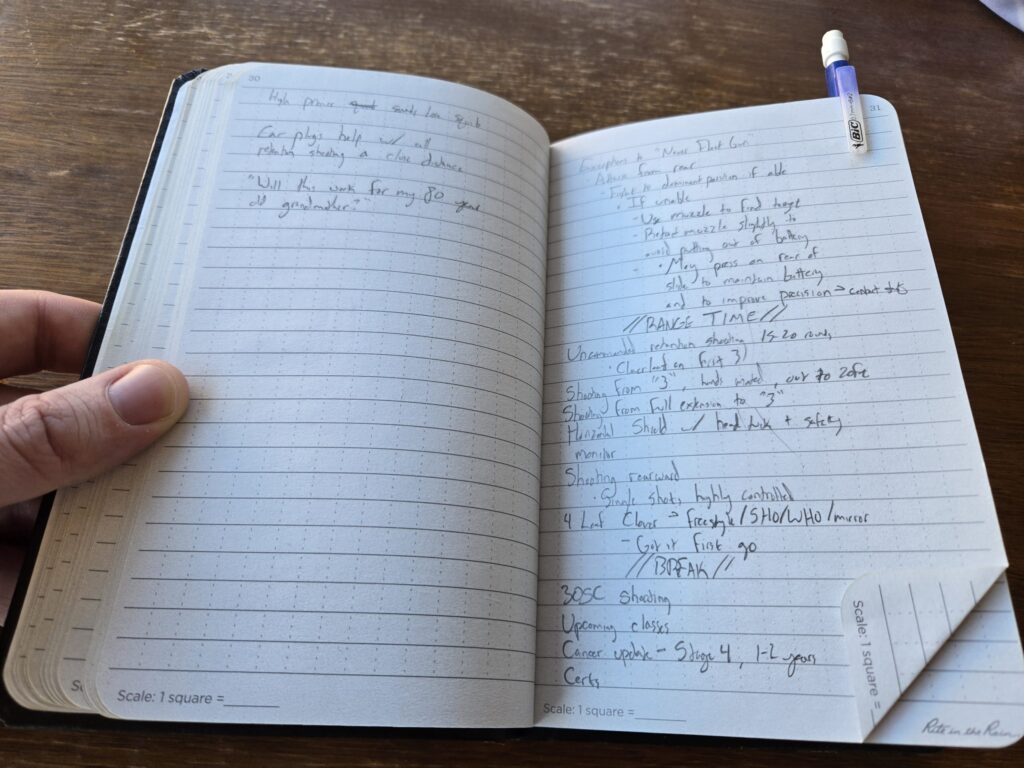 30
High primer sounds like squib
Ear plugs help w/ all
retention shooting @ close distance
"Will this work for my 80 year
old grandmother?"
Scale: 1 square =
31
BIC
Exceptions to "Never Float Gun"
Attack from rear
- Fight to dominant position if able
• If unable
- Use muzzle to find target
- Retract muzzle slightly to
avoid putting out of battery
• May press on rear of
slide to maintain battery
and to improve precision → contact shots
//RANGE TIME//
retention shooting 15-20 rounds
on first 3)
Shooting from "3", hands mated, out to
Shooting from full extension to "3"
Horizontal Shield w/ head tuck + safety
monitor
Shooting rearward
• Single shots, highly controlled
4 Leaf Clover → Freestyle/SHO/WHO/mirror
- Got it first go
//BREAK//
30SC shooting
Upcoming classes
Cancer update - Stage 4, 1-2 years
Certs
Scale: 1 square =
Scale: 1 square =
Rite in the Rain